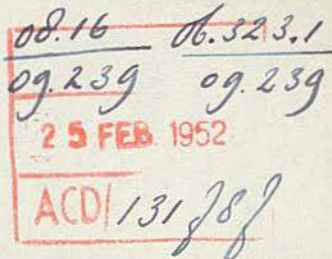 08.16 06.323.1
09.239 09.239
25 FEB 1952
ACD/131